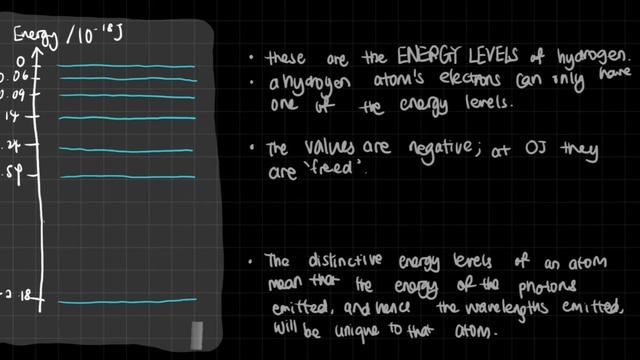 Energy /10⁻¹⁸J
0
0.06
0.09
14
.24
.54
-2.18
• these are the ENERGY LEVELS of hydrogen.
• a hydrogen atom's electrons can only have
one of the energy levels.
• The values are negative; at 0J they
are 'freed'.
• The distinctive energy levels of an atom
mean that the energy of the photons
emitted, and hence the wavelengths emitted,
will be unique to that atom.